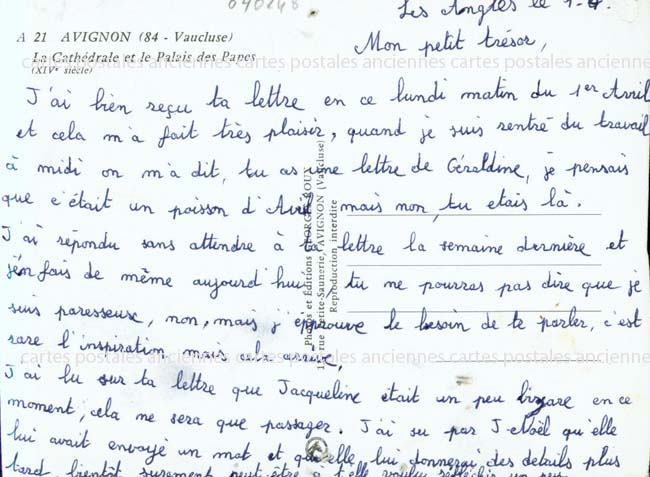 040248
Les Angles le 1-4.
A 21 AVIGNON (84 - Vaucluse)
La Cathédrale et le Palais des Papes
(XIVe siècle)
cartes postales anciennes cartes postales anciennes cartes postales anciennes
Mon petit trésor,
J'ai bien reçu ta lettre en ce lundi matin du 1er Avril
et cela m'a fait très plaisir, quand je suis rentré du travail
à midi on m'a dit, tu as une lettre de Géraldine, je pensais
que c'était un poisson d'Avril mais non, tu etais là.
J'ai répondu sans attendre à ta lettre la semaine dernière et
j'en fais de même aujourd'hui tu ne pourras pas dire que je
suis paresseuse, non, mais j'éprouve le besoin de te parler, c'est
rare l'inspiration mais cela arrive,
cartes postales anciennes cartes postales anciennes cartes postales anciennes
J'ai lu sur ta lettre que Jacqueline était un peu bizare en ce
moment, cela ne sera que passager. J'ai su par J-Noël qu'elle
lui avait envoyé un mot et qu'elle lui donnerai des details plus
tard, bientôt surement peut-être a t'elle voulu
Photos et Editions GEORGES ROUX
rue Petite-Saunerie, AVIGNON (Vaucluse)
Reproduction interdite